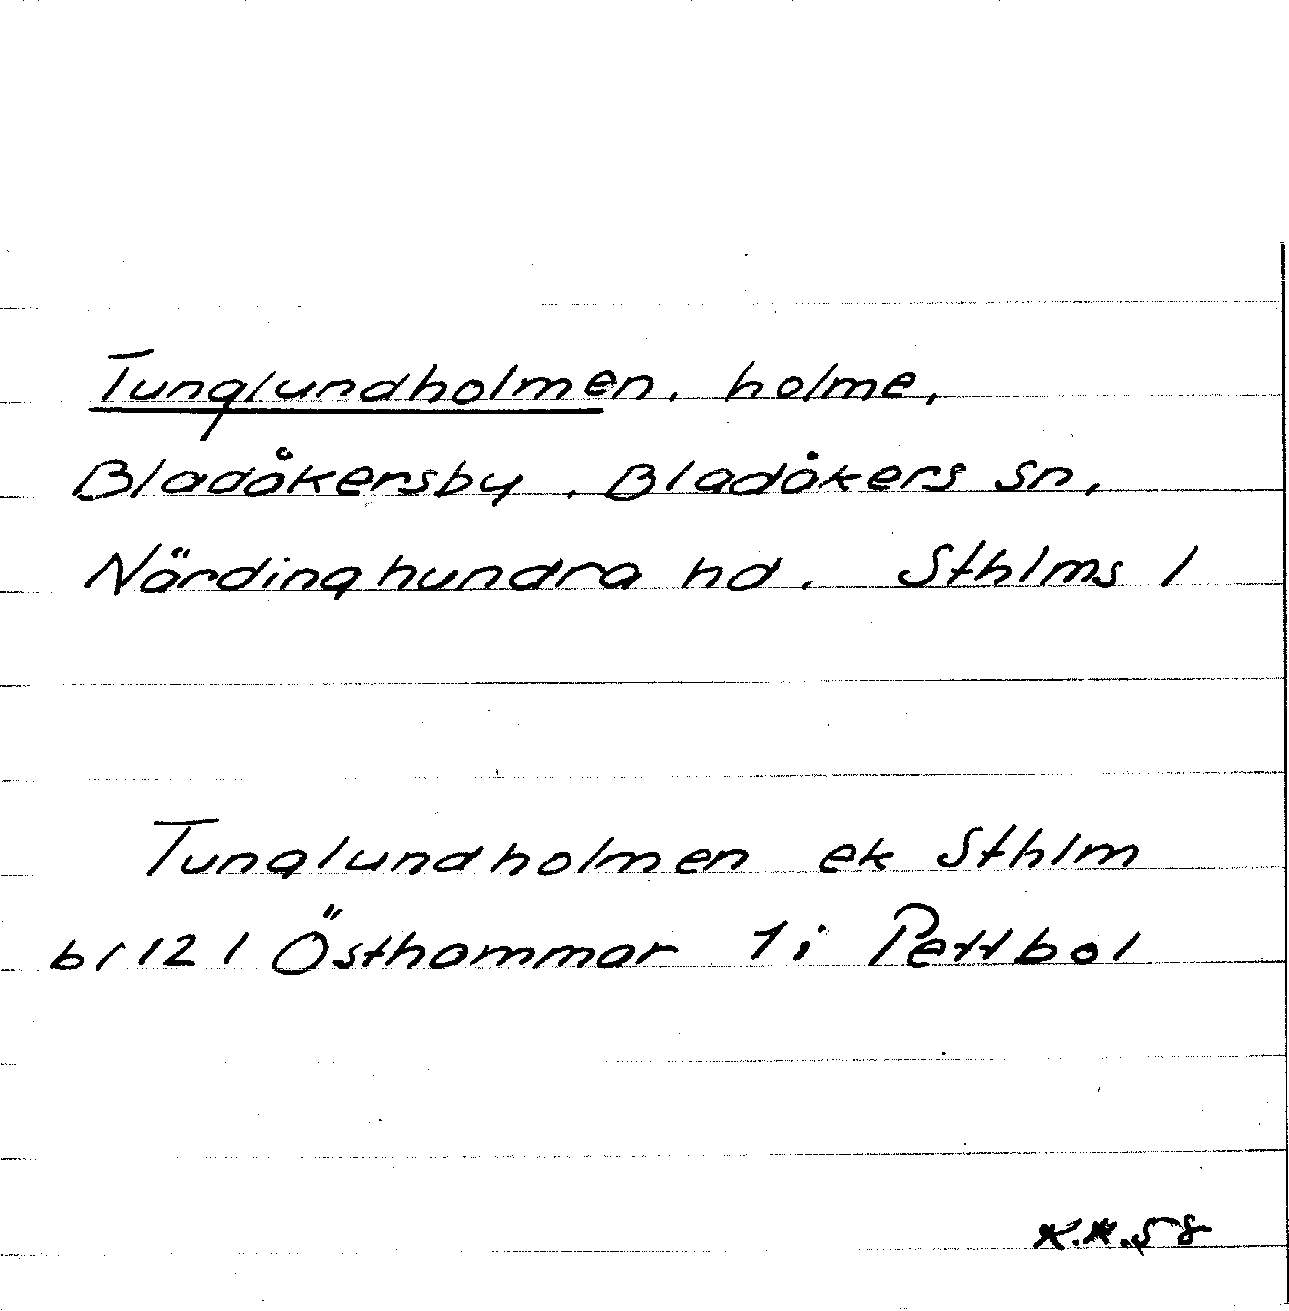 Tunglundholmen, holme,
Bladåkersby, Bladåkers sn,
Närdinghundra hd. Sthlms l
Tunglundholmen ek Sthlm
bl 121 Östhammar 1i Pettbol
K.H.58